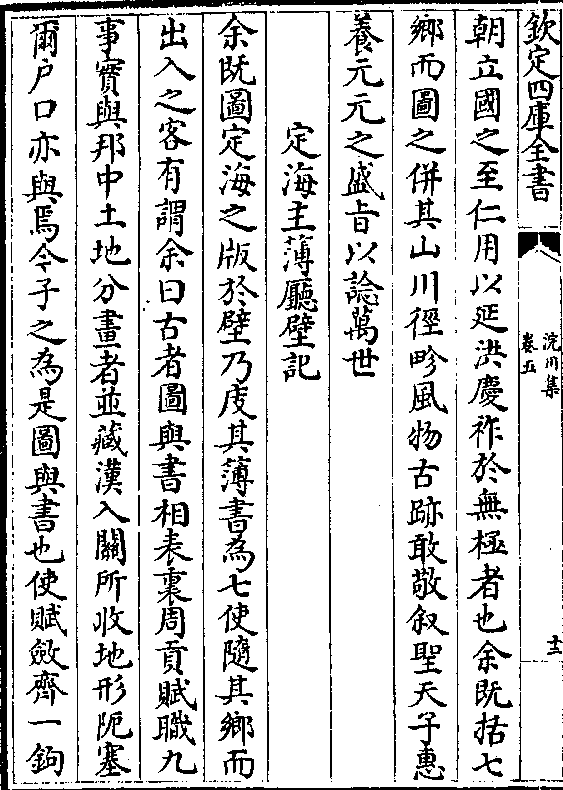 欽定四庫全書
浣川集
卷五
十三
朝立國之至仁用以延洪慶祚於無極者也余既括七
鄉而圖之併其山川徑畛風物古跡敢敬叙聖天子惠
養元元之盛旨以諗萬世
定海主薄廳壁記
余既圖定海之版於壁乃庋其薄書為七使隨其鄉而
出入之客有謂余曰古者圖與書相表裏周貢賦職九
事實與邦中土地分畫者並藏漢入關所收地形阨塞
爾户口亦與焉今子之為是圖與書也使賦斂齊一鉤